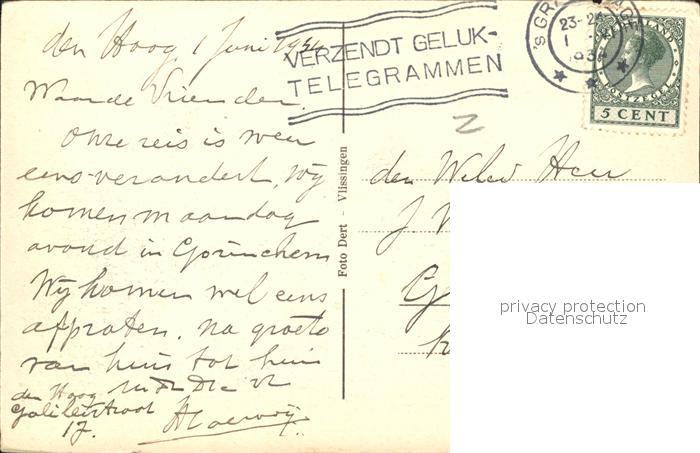 den Haag, 1 Juni 1934
Waarde Vrienden.
Onze reis is weer
eens veranderd, Wij
komen maandag
avond in Gorinchem
Wij komen wel eens
afpraten. na groete
van huis tot huis
den Haag
Galileistraat
17.
VERZENDT GELUK-
TELEGRAMMEN
'S GRAVENHAGE
23-24
1
193
NEDERLAND
POSTZEGEL
5 CENT
Foto Dert - Vlissingen
den WelEd Heer
J
G
privacy protection
Datenschutz